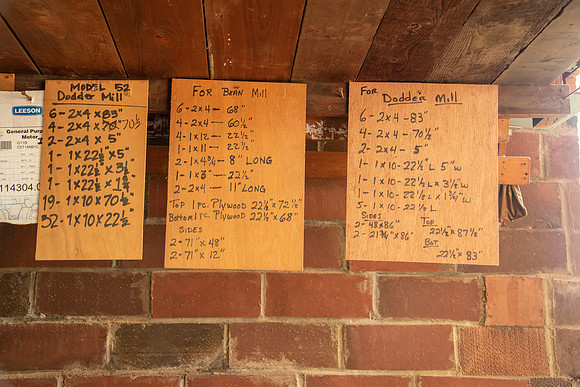 LEESON
General Purp
Motor
114304.0
MODEL 52
Dodder Mill
6-2x4x83"
4-2x4x70½
2-2x4x5"
1-1x22½"x5"
1-1x22½x3½"
1-1x22½x1¾"
19-1x10x70½"
52-1x10x22½"
FOR BEAN Mill
6-2x4- 68"
4-2x4- 60½"
4-1x12- 22½"
1-1x11- 22½
2-1x4¾- 8" LONG
2-2x4- 11" LONG
Top 1 pc. Plywood 22½"x72½"
Bottom 1 pc. Plywood 22½"x68"
SIDES
2-71"x48"
2-71"x12"
FOR Dodder Mill
6-2x4-83"
4-2x4-70½"
2-2x4-5"
1-1x10-22½"L 5"W
1-1x10-22½Lx3½"W
1-1x10-22½Lx1¾"W
5-1x10-22½L
SIDES
2-48x86"
2-21¾"x86"
Top
22½"x87½"
BOT
22½"x83"